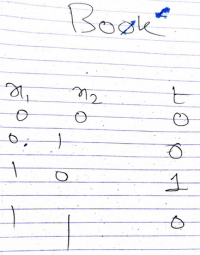 Book
x₁ x₂ t
0 0 0
0. 1 0
1 0 1
1 1 0